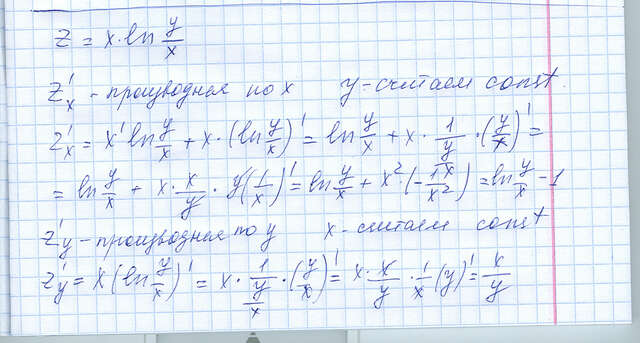 z = x·ln y/x
z'x - производная по x y - считаем const
z'x = x' ln y/x + x·(ln y/x)' = ln y/x + x · 1/(y/x) · (y/x)' =
= ln y/x + x · x/y · y(1/x)' = ln y/x + x²·(-1/x²) = ln y/x - 1
z'y - производная по y x - считаем const
z'y = x(ln y/x)' = x · 1/(y/x) · (y/x)' = x · x/y · 1/x (y)' = x/y